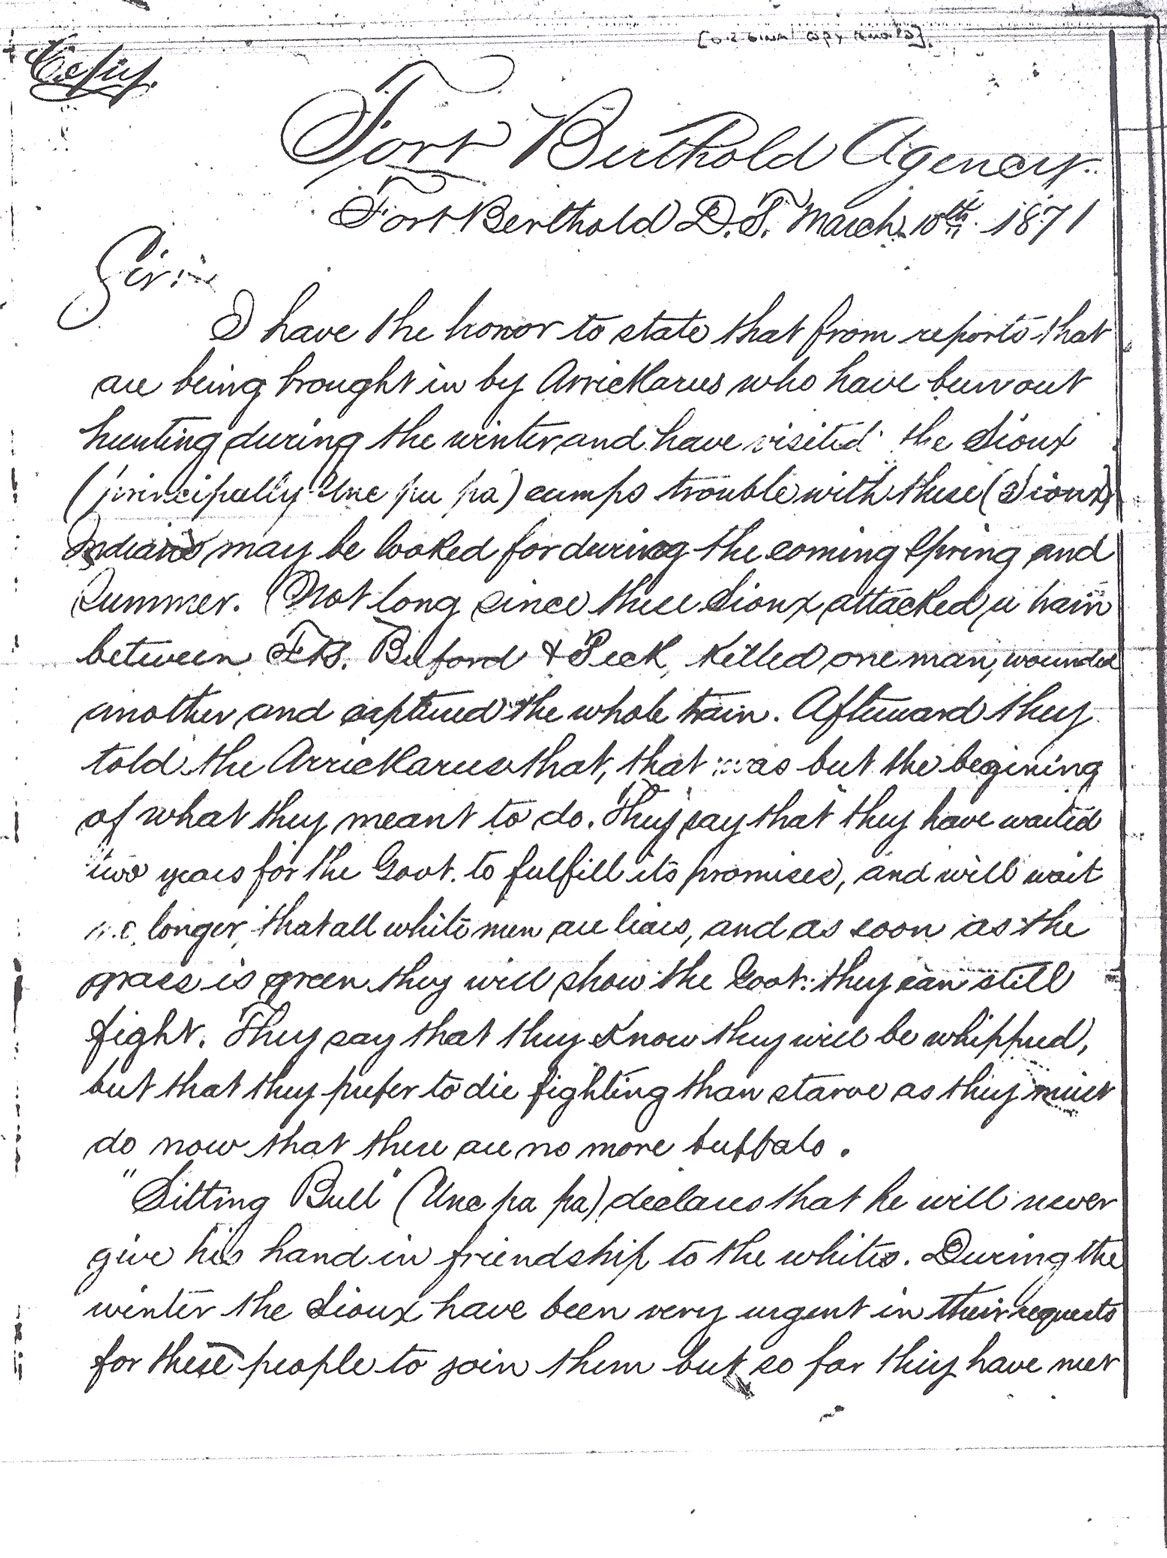 [ORIGINAL copy
Copy.
Fort Berthold Agency.
Fort Berthold D.T. March 10th 1871
Sir:
I have the honor to state that from reports that
are being brought in by Arrickarees who have been out
hunting during the winter and have visited the Sioux
(principally Unc pa pa) camps trouble with these (Sioux)
Indians may be looked for during the coming Spring and
Summer. Not long since these Sioux attacked a train
between Fts. Buford & Peck, killed one man, wounded
another and captured the whole train. Afterward they
told the Arrickarees that, that was but the begining
of what they meant to do. They say that they have waited
two years for the Govt. to fulfill its promises, and will wait
no longer, that all white men are liars, and as soon as the
grass is green they will show the Govt. they can still
fight. They say that they know they will be whipped,
but that they prefer to die fighting than starve as they must
do now that there are no more buffalo.
"Sitting Bull" (Unc pa pa) declares that he will never
give his hand in friendship to the whites. During the
winter the Sioux have been very urgent in their requests
for these people to join them but so far they have met